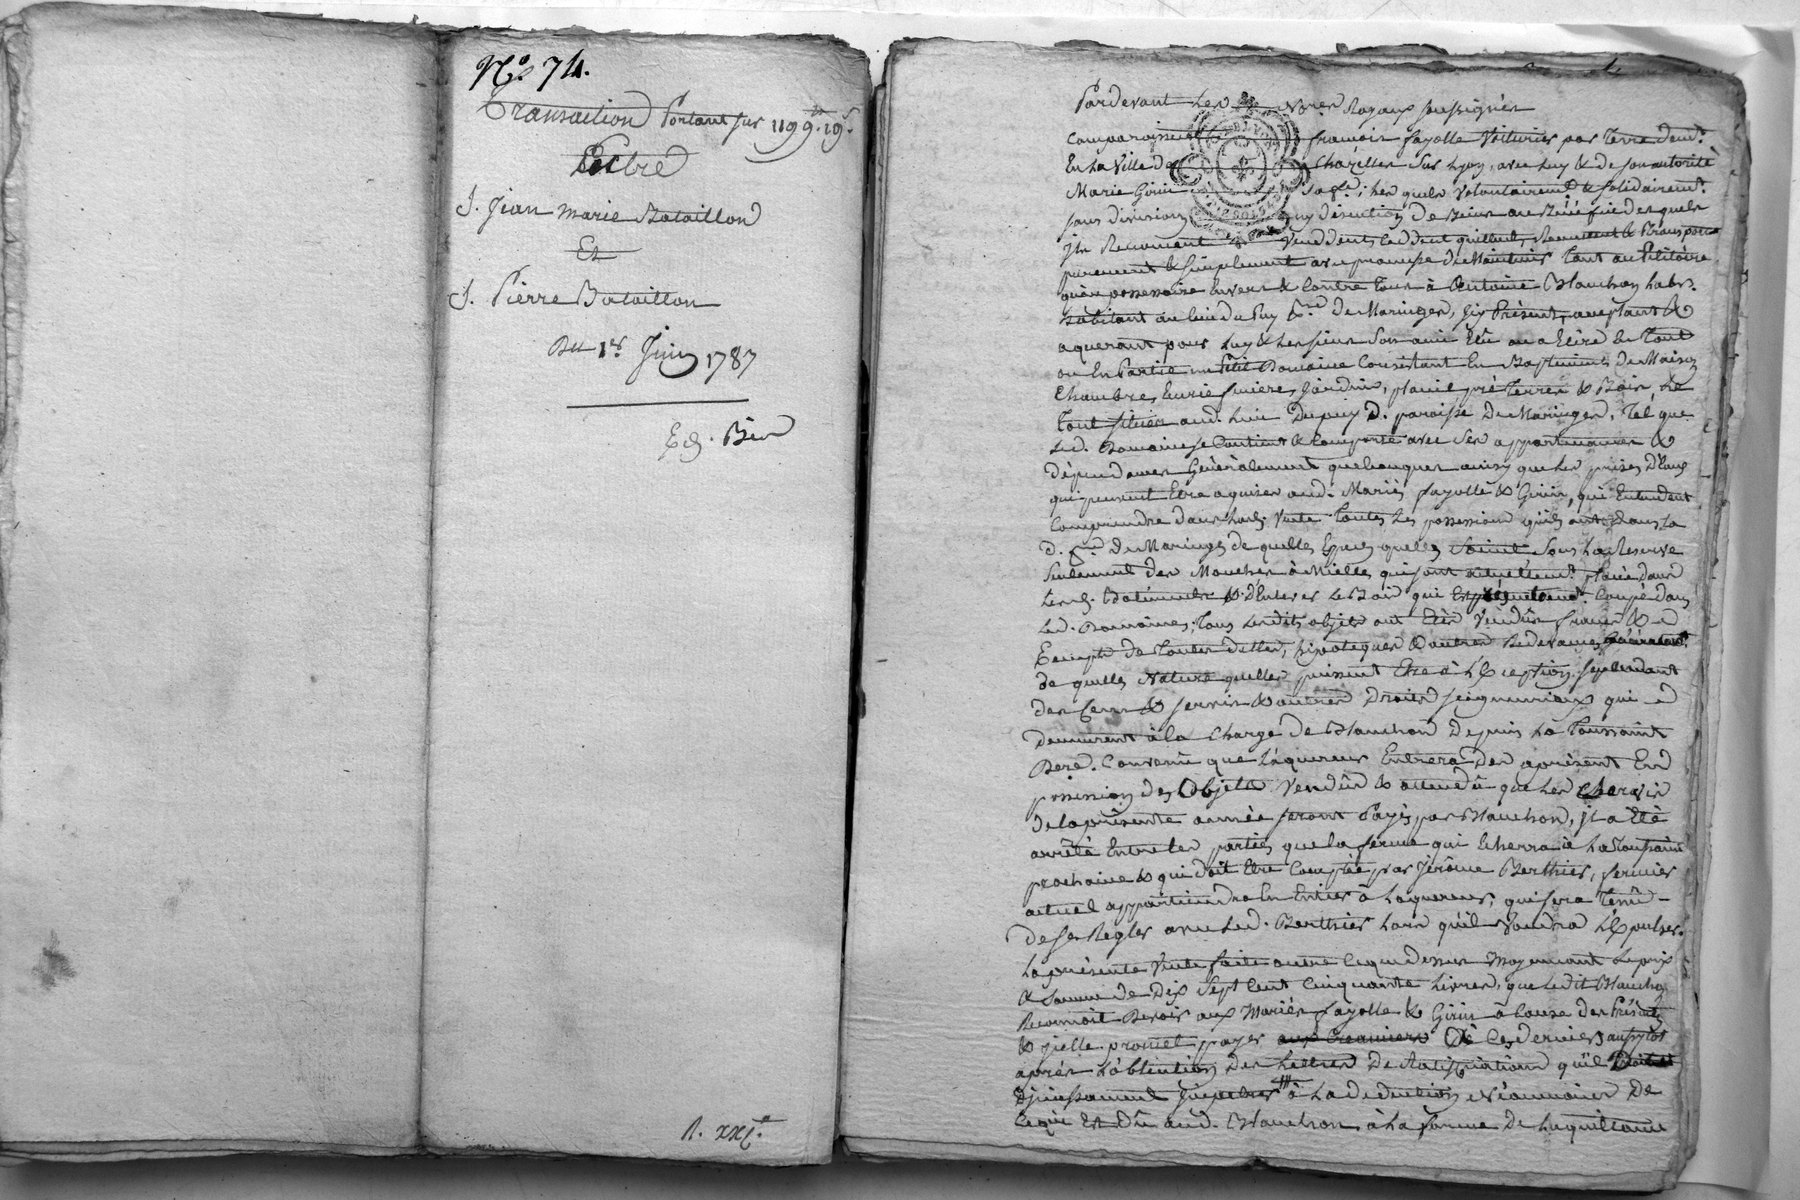 N.° 74.
Transaction Portant sur 1199.lt 19.s
Entre
S. Jean marie Bataillon
Et
S. Pierre Bataillon
Du 1er Juin 1787
Exp. Bien
R. xxj.s
Pardevant Les Nores Royaux soussignés
comparoissent françois fayolle Voiturier par Terre demt.
En La Ville de Chazelles Sur Lyon, avec Luy & de son autorité
Marie Girin sa fe.; Les quels Volontairemt. & solidairemt.
sans division ny discution de Biens au Bénéfice des quels
jls Renoncent Vendent, Ceddent quittent, Remettent & Transporte
purement & simplement avec promesse de Maintenir Tant au Pétitoire
qu'au possessoire Envers & Contre Tous à Antoine Blanchon habt.
habitant au lieu du Puy psse. De Maringes, jcy Présent, acceptant &
aquerant pour Luy & Les siens Son amie Elû ou a Elire En Tout
ou En Partie un Petit Domaine Consistant En Batiments de Maison
Chambres, Ecurie, feniere, Jardin, pré Terres & Bois Le
Tout situés aud. Lieu Dupuy D. paroisse De Maringes, Tel que
Led. Domaine se Contient & Comporte avec Ses appartenances &
dépendances Généralement quelconques ainsy que Les prises D'Eaux
qui peuvent Etre aquises aud. Mariés fayolle & Girin, qui Entendent
Comprendre dans Lad. Vente Toutes Les possessions qu'ils ont dans La
d. psse. De Maringes de quelles Especes quelles soient Sous La Reserve
Seulement des Mouches à Mielles qui sont actuellemt. placé dans
Lesd. Batiments & D'Enlever Le Bois qui Est présentemt. Coupé dans
Led. Domaine; Tous Lesdits objets ont Etés Vendûs francs &
Exempts de Toutes dettes, hipoteques & autres Redevances
de quelles Nature quelles puissent Etre à L'Exception Cependant
des Cens & servis & autres Droits seigneuriaux qui
demeurent à la Charge de Blanchon Depuis La Toussaint
Dere. Convenû que L'aquereur Entrera des aprésent En
possession des Objets Vendûs & attendû que Les Charges
de la présente année seront Payés par Blanchon, jl a Eté
arrêté Entre Les parties que la ferme qui Echerra à La Toussaint
prochaine & qui doit Etre Comptée par Jérôme Berthier, fermier
actuel appartiendra En Entier à Laquereur, qui sera Tenû
de se Regler avec Led. Berthier Lors qu'il Voudra L'Expulser.
La présente Vente faite outre Ce que dessus Moyennant Le prix
& Somme de Dix Sept Cent Cinquante Livres, que Ledit Blanchon
Reconnoit Devoir aux Mariés fayolle & Girin à Cause des Présentes
& jcelle promet payer à Ces derniers aussytot
après L'obtention des Lettres De Ratiffications qu'il
à La deduction Néanmoins De
Ce qui Est Dû aud. Blanchon à La forme De La quittance